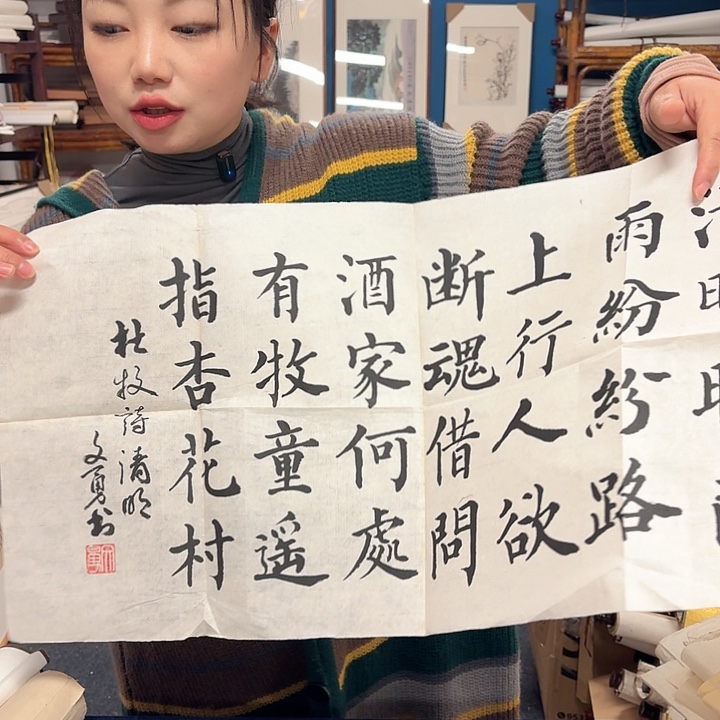 雨紛紛路
上行人欲
断魂借問
酒家何處
有牧童遥
指杏花村
杜牧詩清明
文勇书